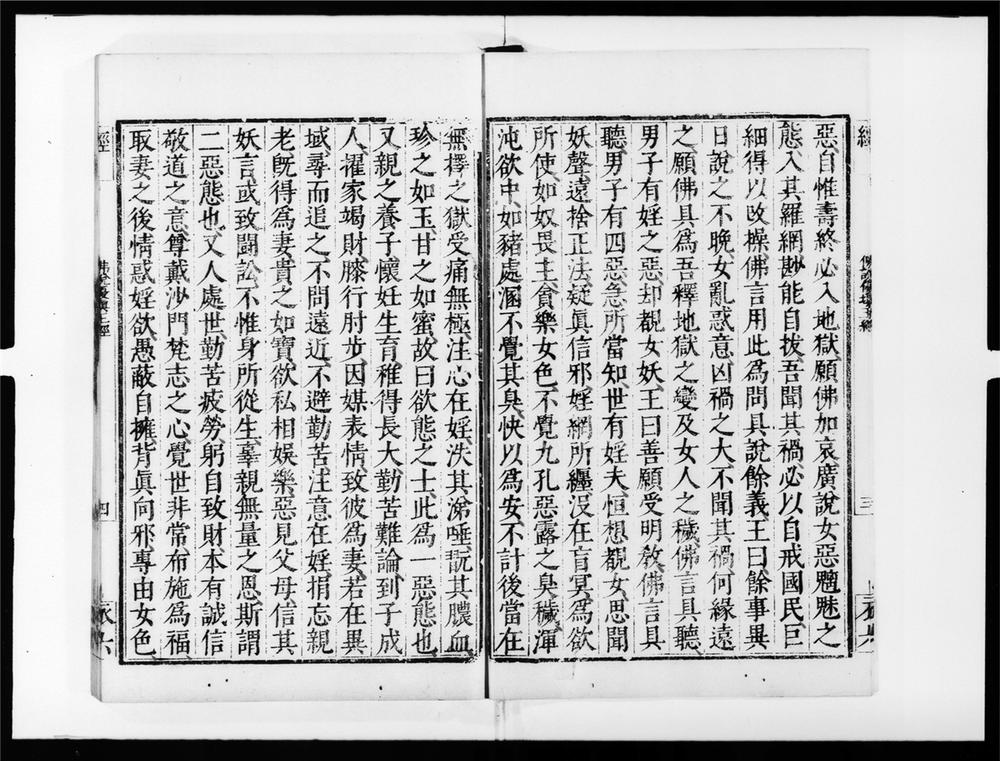 經
佛說優填王經
三
衣六
惡自惟壽終必入地獄願佛加哀廣說女惡魑魅之
態入其羅網尠能自拔吾聞其禍必以自戒國民巨
細得以改操佛言用此爲問且說餘義王曰餘事異
日說之不晚女亂惑意凶禍之大不聞其禍何緣遠
之願佛具爲吾釋地獄之變及女人之穢佛言且聽
男子有婬之惡却覩女妖王曰善願受明教佛言具
聽男子有四惡急所當知世有婬夫恒想覩女思聞
妖聲遠捨正法疑眞信邪婬網所纒沒在盲冥爲欲
所使如奴畏主貪樂女色不覺九孔惡露之臭穢渾
沌欲中如豬處溷不覺其臭快以爲安不計後當在
無擇之獄受痛無極注心在婬泆其涕唾翫其膿血
珍之如玉甘之如蜜故曰欲態之士此爲一惡態也
又親之養子懷妊生育稚得長大勤苦難論到子成
人濯家竭財膝行肘步因媒表情致彼爲妻若在異
域尋而追之不問遠近不避勤苦注意在婬捐忘親
老旣得爲妻貴之如寶欲私相娛樂惡見父母信其
妖言或致鬪訟不惟身所從生辜親無量之恩斯謂
二惡態也又人處世勤苦疲勞躬自致財本有誠信
敬道之意尊戴沙門梵志之心覺世非常布施爲福
取妻之後情惑婬欲愚蔽自擁背眞向邪專由女色
經
佛說優填王經
四
衣六